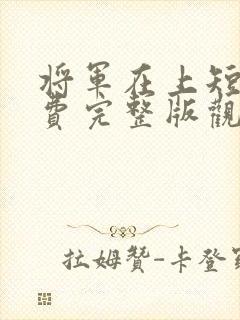 將軍在上短
費完整版觀
拉姆贊-卡登